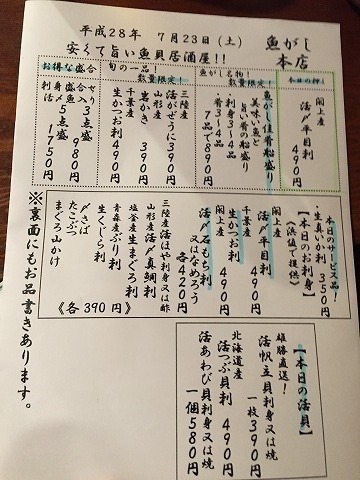 平成28年 7月23日(土)
安くて旨い魚貝居酒屋!!
魚がし
本店
本日の押し
閖上産
活〆平目刺
490円
魚がし名物!
数量限定!
魚がし佳肴船盛り
美味い魚と
旨い肴の船盛り
・刺身3~4品
・肴3~4品
7品で890円
旬の一品!
数量限定!
三陸産
活がぜうに390円
山形産
岩かき 390円
千葉産
生かつお刺 490円
お得な盛合
せり3点盛
980円
刺身5点盛
1750円
本日のサービス品!
・生真いか刺 350円
(浜値で提供)
【本日のお刺身】
閖上産
活〆平目刺
490円
千葉産
生かつお刺
490円
閖上産
活〆石もち刺
又はなめろう
各420円
三陸産活ほや刺身又は酢
山形産活〆真鯛刺
塩釜産生まぐろ刺
青森産ぶり刺
生くじら刺
〆さば
たこぶつ
まぐろ山かけ
《各390円》
【本日の活貝】
雄勝直送!
活帆立貝刺身又は焼
一枚390円
北海道産
活つぶ貝刺 490円
活あわび貝刺身又は焼
一個580円
※裏面にもお品書きあります。